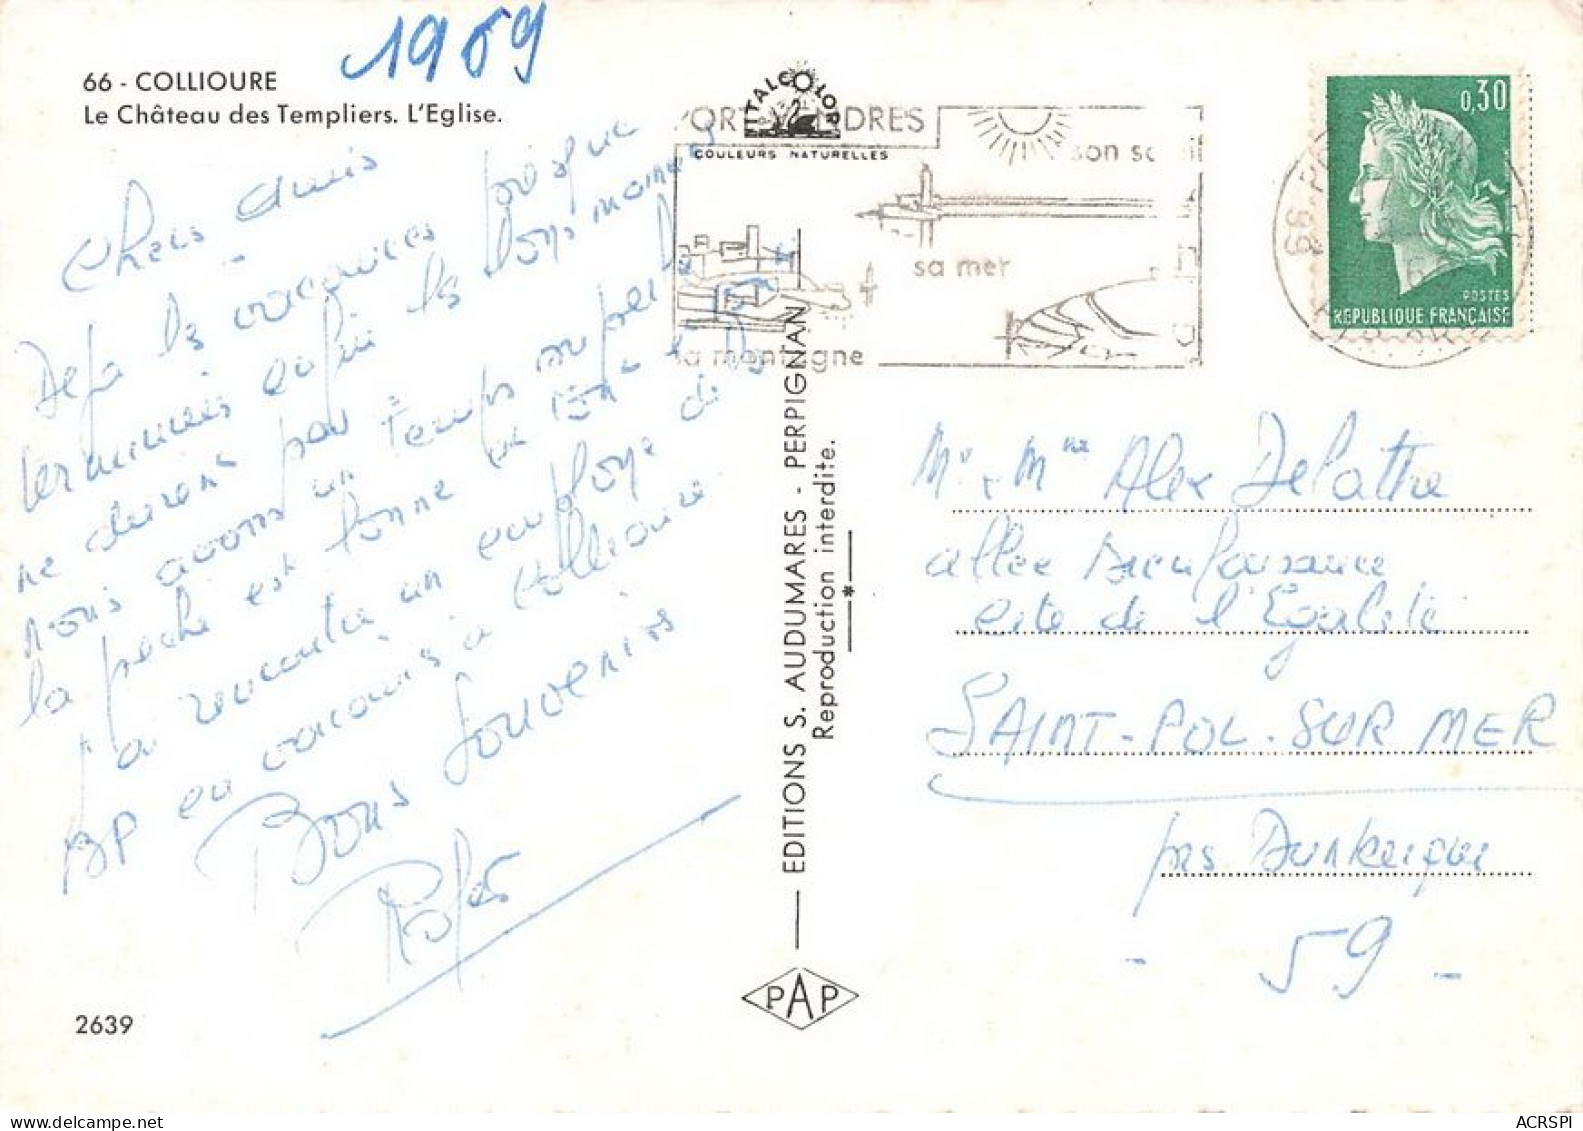 1969
66 - COLLIOURE
Le Château des Templiers. L'Eglise.
Chers amis
Déjà les vacances presque
terminées enfin les bons moments
ne durent pas
nous avons un temps superbe
la peche est bonne
J'ai rencontré un employé de
BP en vacances à Collioure
Bons Souvenirs
2639
ITALCOLOR
COULEURS NATURELLES
PORT VENDRES
son soleil
sa mer
la montagne
EDITIONS S. AUDUMARES - PERPIGNAN
Reproduction interdite.
PAP
0,30
POSTES
REPUBLIQUE FRANÇAISE
66
Mr & Mme Alex Delattre
allée Bienfaisance
cité de l'Egalité
SAINT-POL-SUR MER
près Dunkerque
- 59 -
ACRSPI